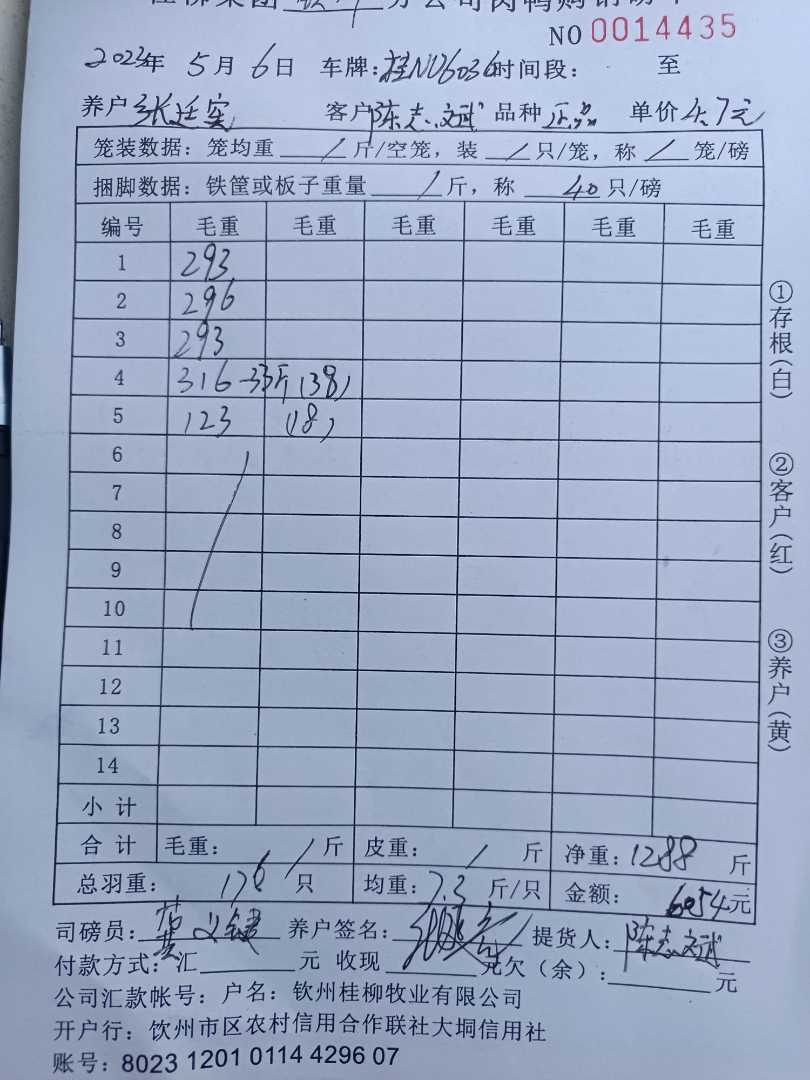 桂柳集团 分公司肉鸭购销磅单
NO 0014435
2023年 5月 6日 车牌:桂N06036时间段: 至
养户 张廷实 客户 陈志斌 品种 正品 单价 4.7元
笼装数据: 笼均重 / 斤/空笼, 装 / 只/笼, 称 / 笼/磅
捆脚数据: 铁筐或板子重量 / 斤, 称 40 只/磅
编号 毛重 毛重 毛重 毛重 毛重 毛重
1 293
2 296
3 293
4 316-33斤 (38)
5 123 (18)
6
7
8
9
10
11
12
13
14
小计
合计 毛重: / 斤 皮重: / 斤 净重: 1288 斤
总羽重: 176 只 均重: 7.3 斤/只 金额: 6054元
司磅员: 养户签名: 提货人: 陈志斌
付款方式: 汇 元 收现 元欠(余): 元
公司汇款帐号: 户名: 钦州桂柳牧业有限公司
开户行: 饮州市区农村信用合作联社大垌信用社
账号: 8023 1201 0114 4296 07
①存根(白)
②客户(红)
③养户(黄)